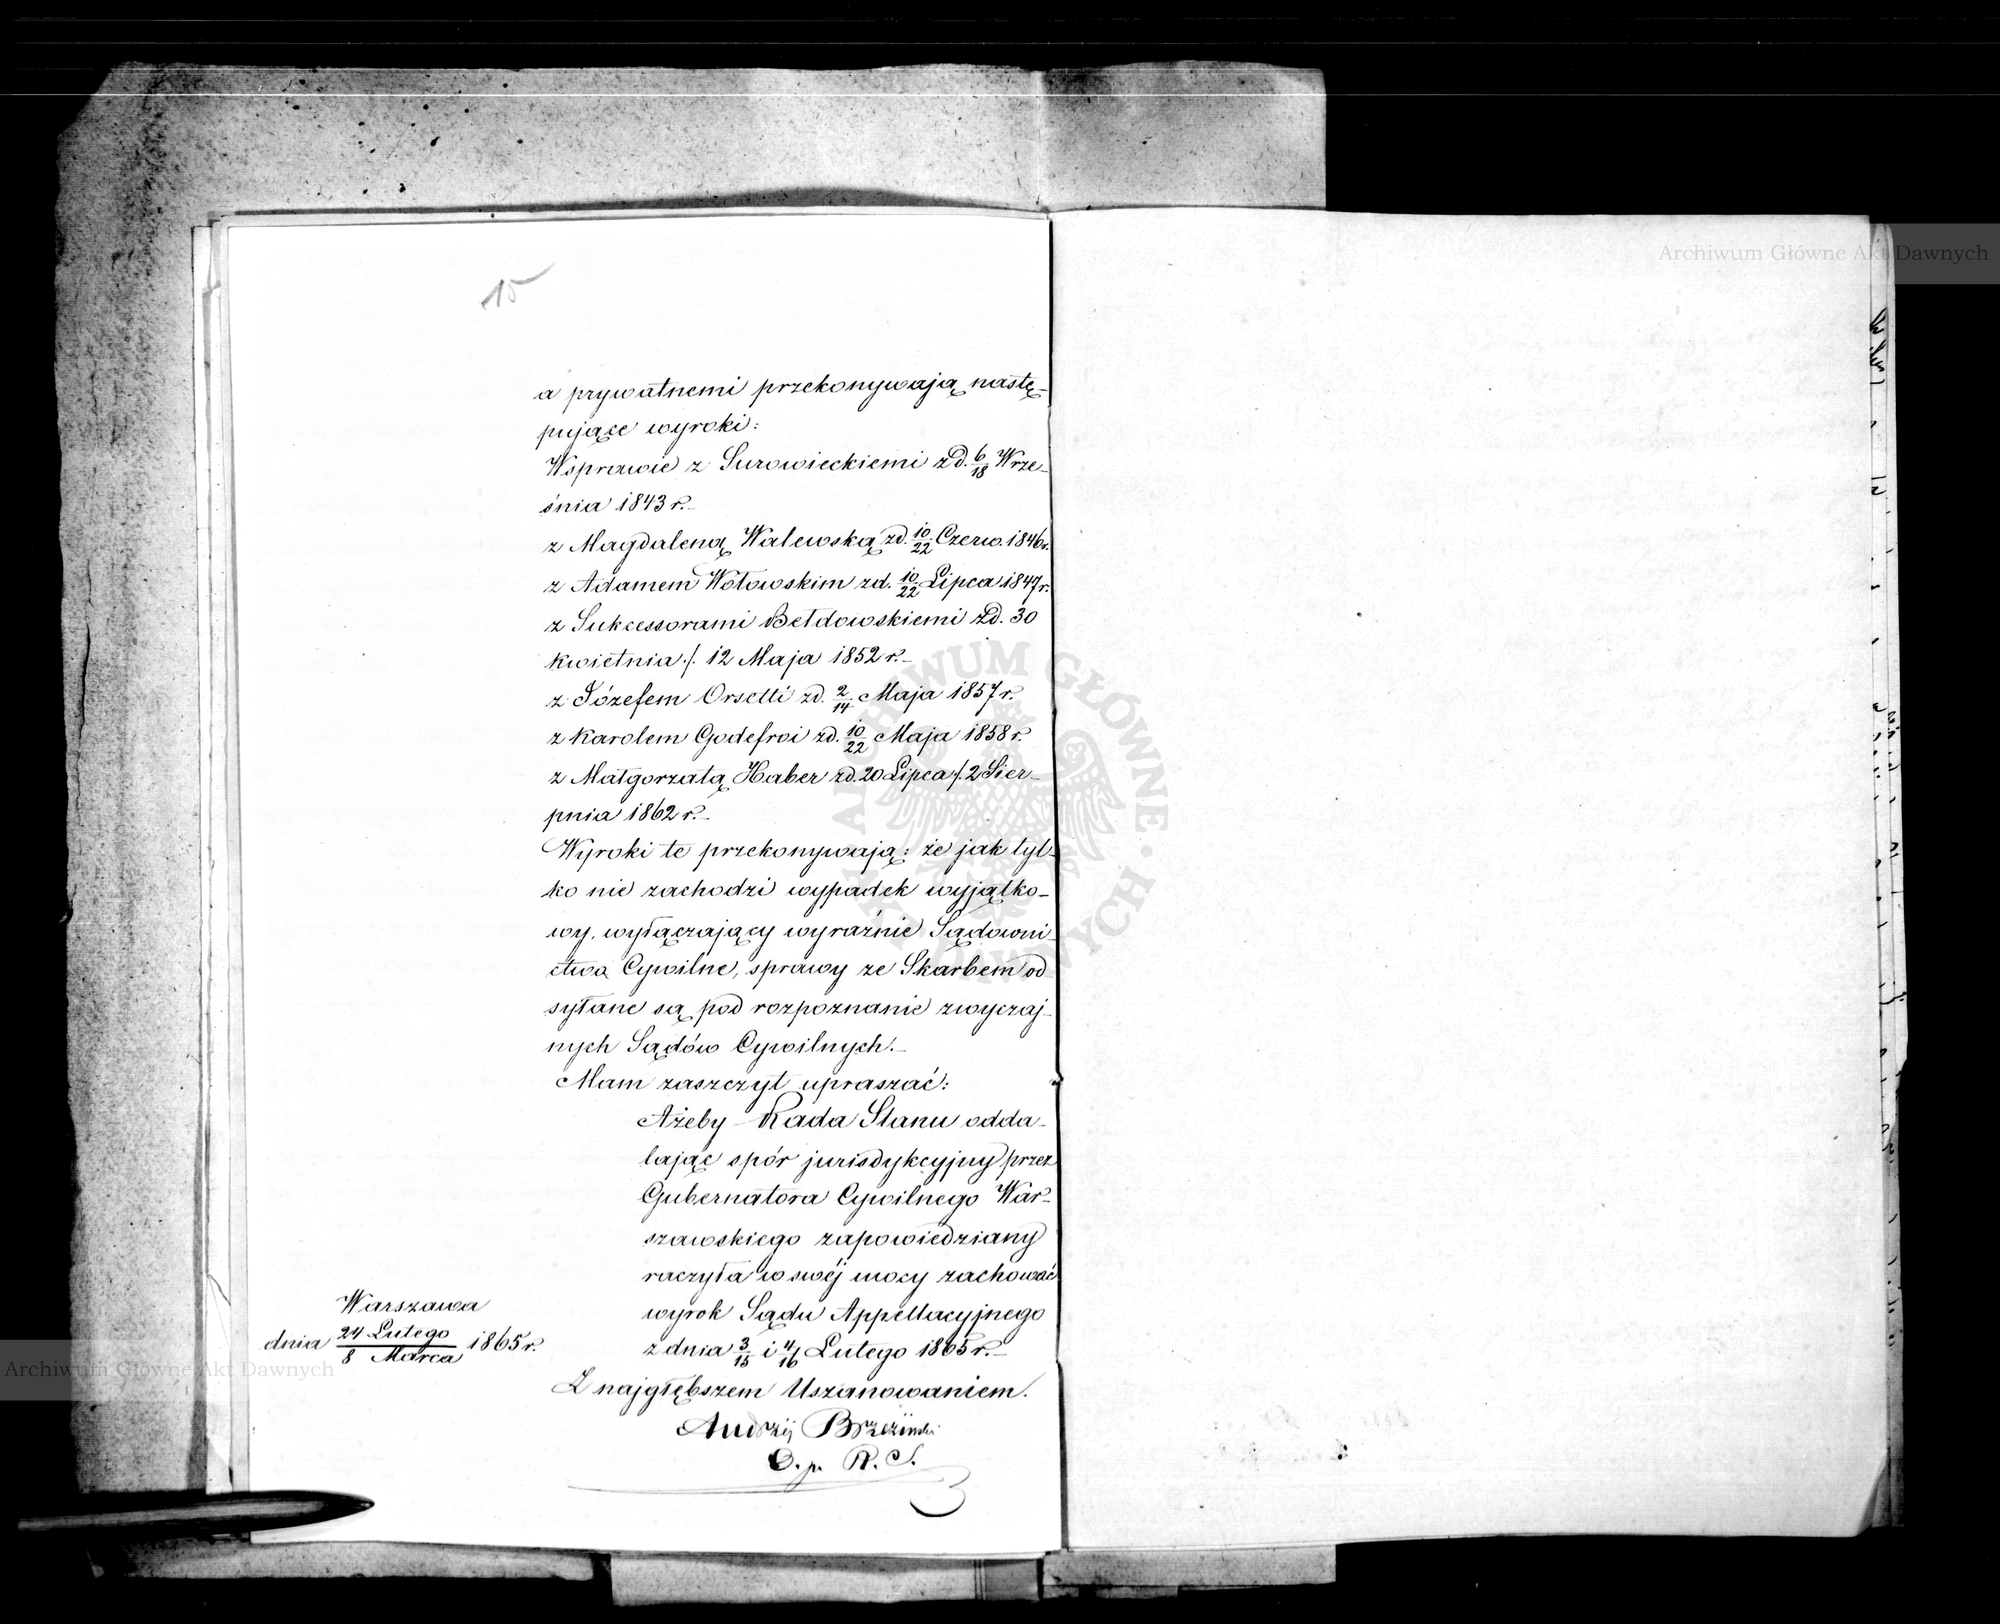 15
a prywatnemi przekonywają nastę-
pujące wyroki:
Wsprawie z Surowieckiemi zd. 6/18 Wrze-
śnia 1843 r.-
z Magdaleną Walewską zd. 10/22 Czerw. 1846 r.
z Adamem Wołowskim zd. 10/22 Lipca 1847 r.
z Sukcessorami Bełdowskiemi zd. 30
kwietnia ./. 12 Maja 1852 r.-
z Józefem Orsetti zd. 2/14 Maja 1857 r.
z Karolem Godefroi zd. 10/22 Maja 1858 r.
z Małgorzatą Haber zd. 20 Lipca /. 2 Sier-
pnia 1862 r.-
Wyroki te przekonywają: że jak tyl-
ko nie zachodzi wypadek wyjątko-
wy, wyłączający wyraźnie Sądowni-
ctwa Cywilne, sprawy ze Skarbem od-
syłane są pod rozpoznanie zwyczaj-
nych Sądów Cywilnych.-
Mam zaszczyt upraszać:
Ażeby Rada Stanu odda-
lając spór jurisdykcyjny przez
Gubernatora Cywilnego War-
szawskiego zapowiedziany
raczyła w swéj mocy zachować
wyrok Sądu Appellacyjnego
z dnia 3/15 i 4/16 Lutego 1865 r.-
Warszawa
dnia 24 Lutego/8 Marca 1865 r.
Z najgłębszem Uszanowaniem.
Andrzéj Brzeziński
O. p. R. S.
Archiwum Główne Akt Dawnych
Archiwum Główne Akt Dawnych
ARCHIWUM GŁÓWNE AKT DAWNYCH